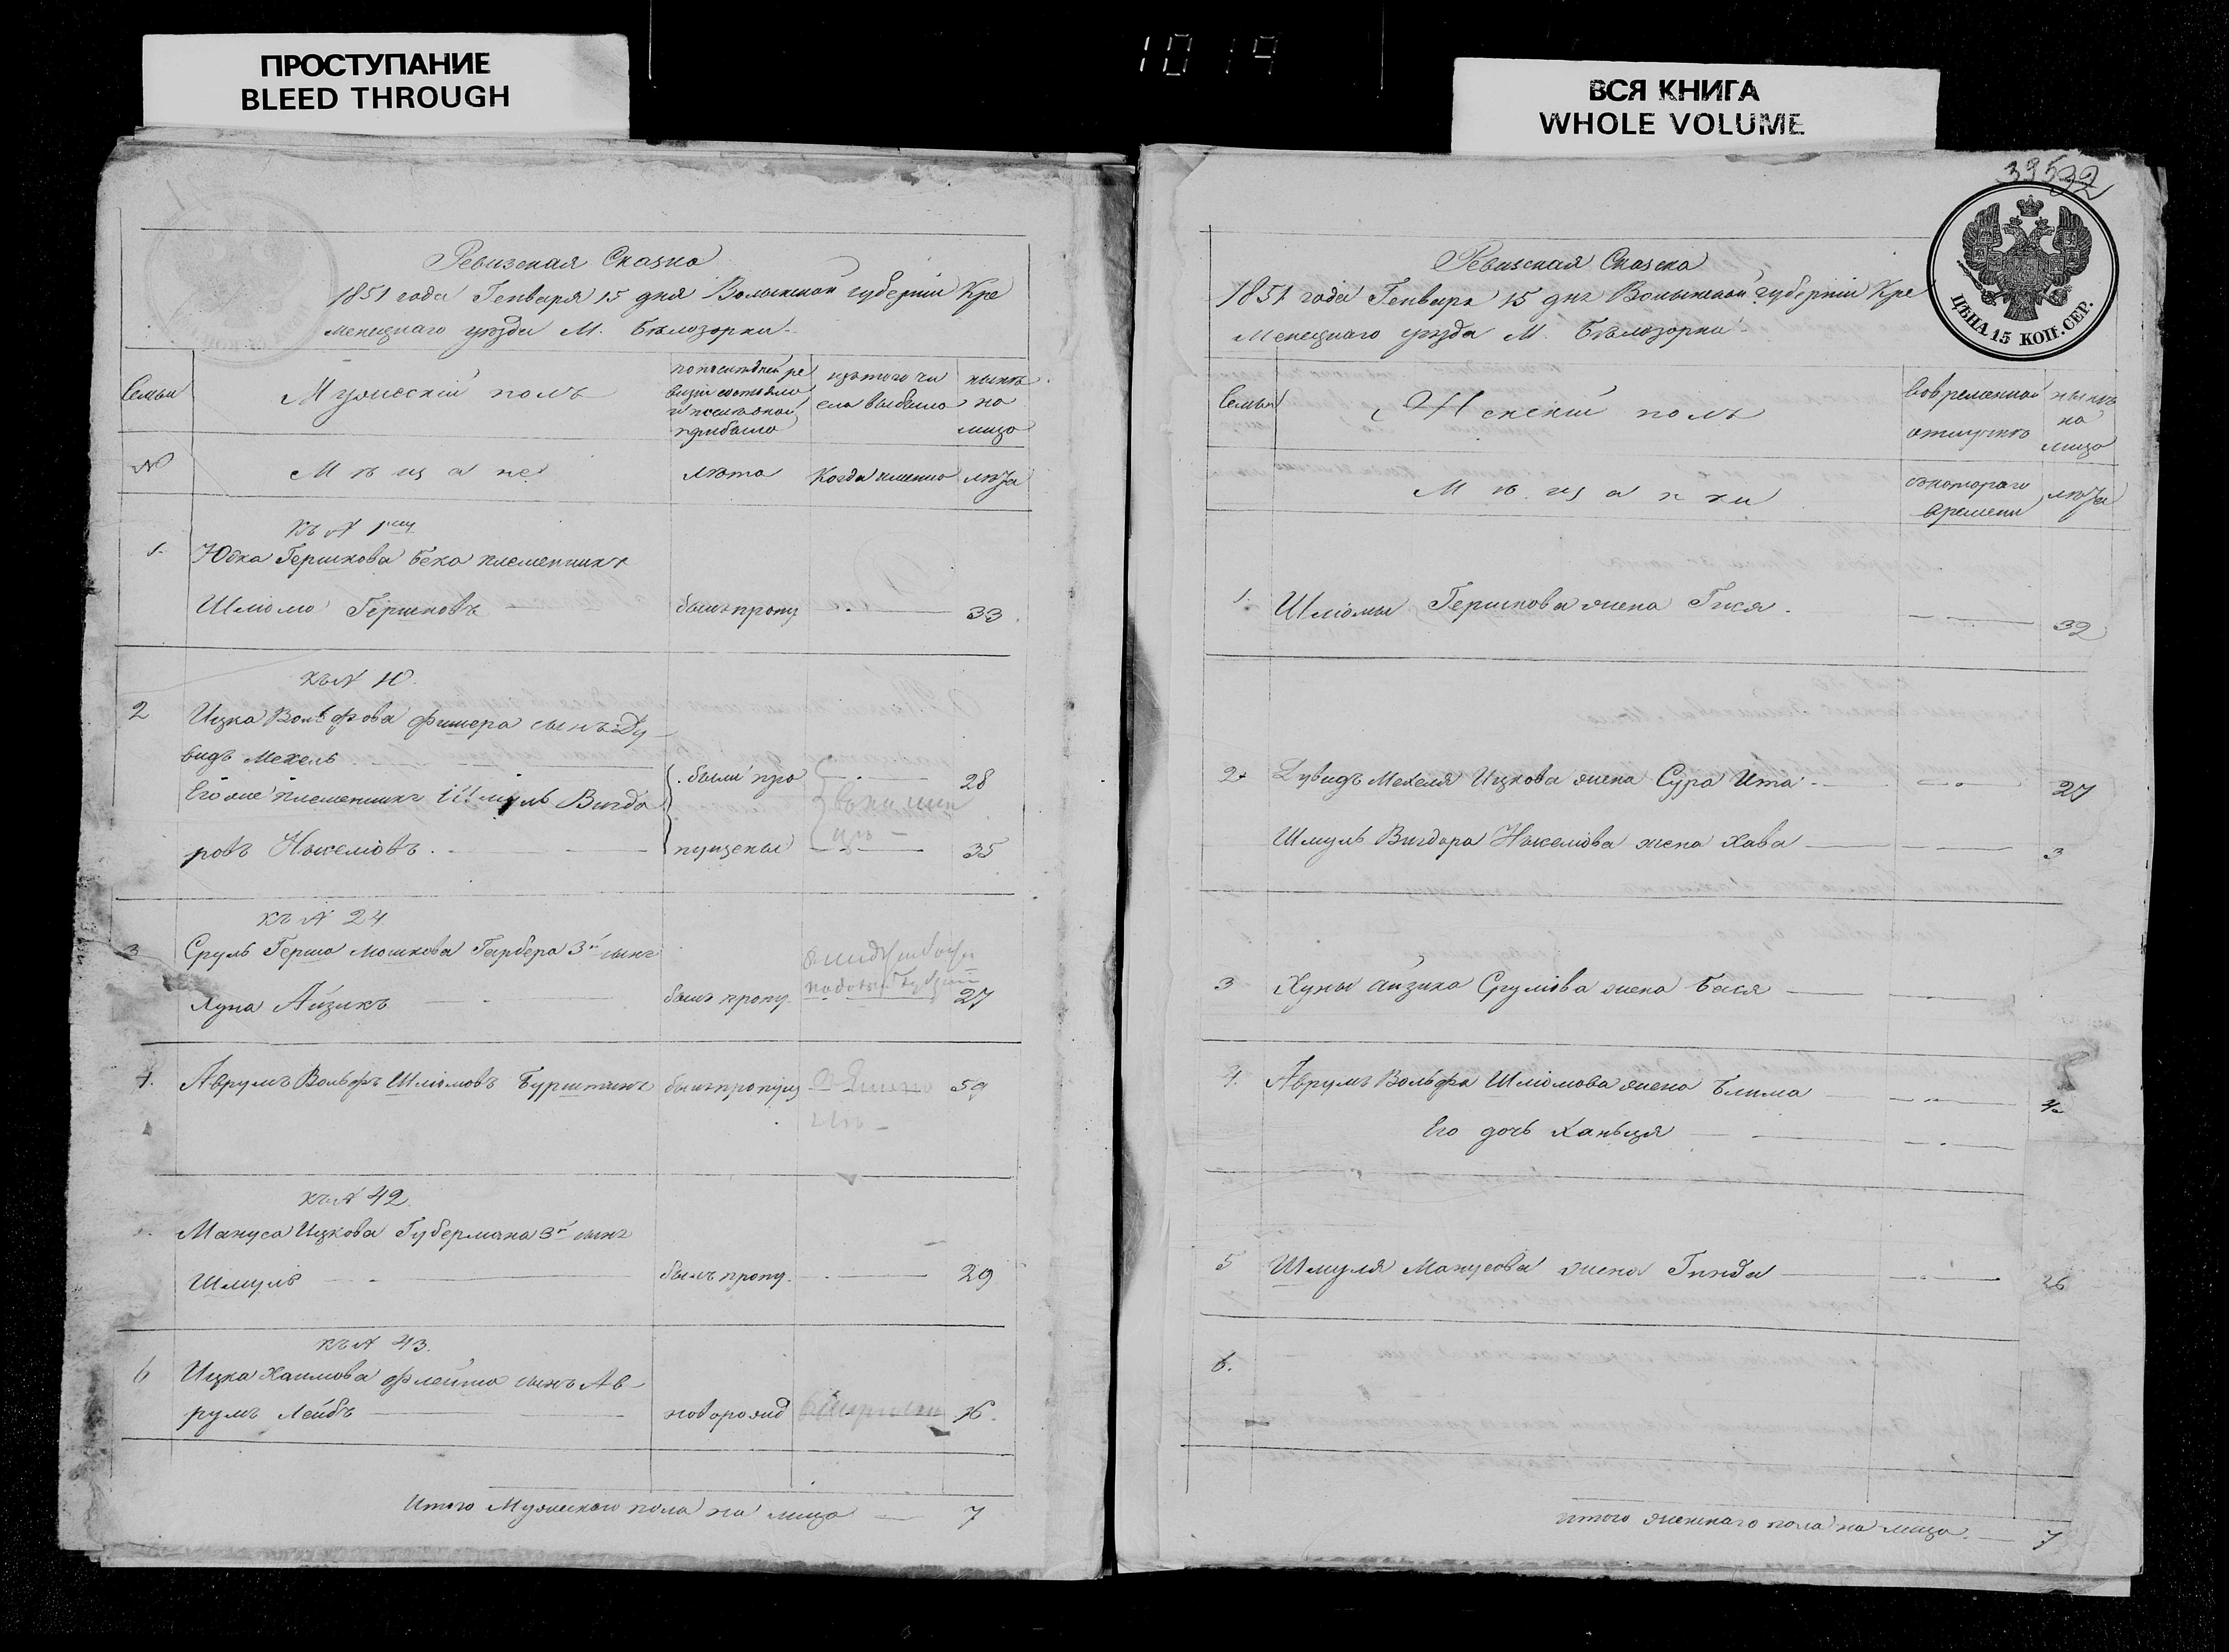 ПРОСТУПАНИЕ
BLEED THROUGH
1019
ВСЯ КНИГА
WHOLE VOLUME
Ревизская Сказка
1851 года Генваря 15 дня Волынской губерніи Кре
менецкаго уѣзда М. Бѣлозорки
Семьи
Мужескій полъ
по послѣдней ре
визіи состояло
и послѣ оной
прибыло
изъ того чи
сла выбыло
нынѣ
на
лицо
№
Мѣщане
лѣта
Когда именно
лѣта
къ № 1му
1.
Юдка Гершкова Бека племенникъ
Шліомо Гершковъ
былъ пропу.
33
къ № 10.
2
Ицка Вольфова Фишера сынъ Ду
видъ Мехель
были про
28
Его же племенникъ Шмуль Вигдо
ровъ Ніселіовъ.
пущены
35
къ № 24
3
Сруль Герша Мошкова Гарбера 3й сынъ
Хуна Айзикъ
былъ пропу.
27
4.
Аврумъ Вольфъ Шліомовъ Бурштинъ
былъ пропущ
59
къ № 42
Мануса Ицкова Губермана 3й сынъ
Шмуль
былъ пропу.
29
къ № 43.
6
Ицка Хаимова Флейша сынъ Ав
румъ Лейбъ
новорожд
16.
Итого Мужескаго пола на лицо
7
39532
ЦѢНА 15 КОП. СЕР.
Ревизская Сказка
1851 года Генваря 15 дня Волынской губерніи Кре
менецкаго уѣзда М. Бѣлозорки
Семьи
Женскій полъ
во временной
отлучкѣ
нынѣ
на
лицо
Мѣщанки
съ котораго
времени
лѣта
1.
Шліомы Гершкова жена Гися.
32
2.
Дувидъ Мехеля Ицкова жена Сура Ита
27
Шмуль Вигдора Ніселіова жена Хава
3
3
Хуны Айзика Срулiова жена Бася
4.
Аврумъ Вольфа Шліомова жена Блима
Его дочь Ханьця
5
Шмуля Манусова жена Гинда
26
6.
итого женскаго пола на лицо.
7